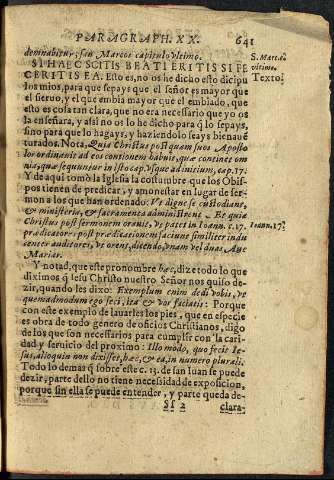 PARAGRAPH. XX. 641
demnabitur, san Marcos capitulo vltimo.
SI HAEC SCITIS BEATI ERITIS SI FE
CERITIS EA. Esto es, no os he dicho esto dicipu
los mios, para que sepays que el señor es mayor que
el sieruo, y el que embia mayor que el embiado, que
esto es cosa tan clara, que no era necessario que yo os
la enseñara, y assi no os lo he dicho para q̃ lo sepays,
sino para que lo hagays, y haziendolo seays bienauē
turados. Nota, Quia Christus postquam suos Aposto
lor ordinauit ad eos contionem habuit, quæ continet om
nia, quæ sequuntur in isto cap. vsque ad initium, cap. 17.
Y de aqui tomò la Iglesia la costumbre que los Obis-
pos tienen de predicar, y amonestar en lugar de ser-
mon a los que han ordenado: Vt digne se custodiant,
& ministeria, & sacramenta administrent. Et quia
Christus post sermonem orauit, vt patet in Ioann. c. 17.
prædicatores post prædicationem faciunt similiter indu
centes auditores, vt orent, dicendo, vnam vel duas Aue
Marias.
Y notad, que este pronombre hæc, dize todo lo que
diximos q̃ Iesu Christo nuestro Señor nos quiso de-
zir, quando les dixo: Exemplum enim dedi vobis, vt
quemadmodum ego feci, ita & vos faciatis: Porque
con este exemplo de lauarles los pies, que en especie
es obra de todo género de oficios Christianos, digo
de los que son necessarios para cumplir con la cari-
dad y seruicio del proximo: Illo modo, quo fecit Ie-
sus, alioquin non dixisset, hæc, & ea, in numero plurali.
Todo lo demas q̃ sobre este c. 13. de san Iuan se puede
dezir, parte dello no tiene necessidad de exposicion,
porque sin ella se puede entender, y parte queda de-
Sf 2 clara-
S. Marco.
vltimo.
Texto.
Ioann. 17.